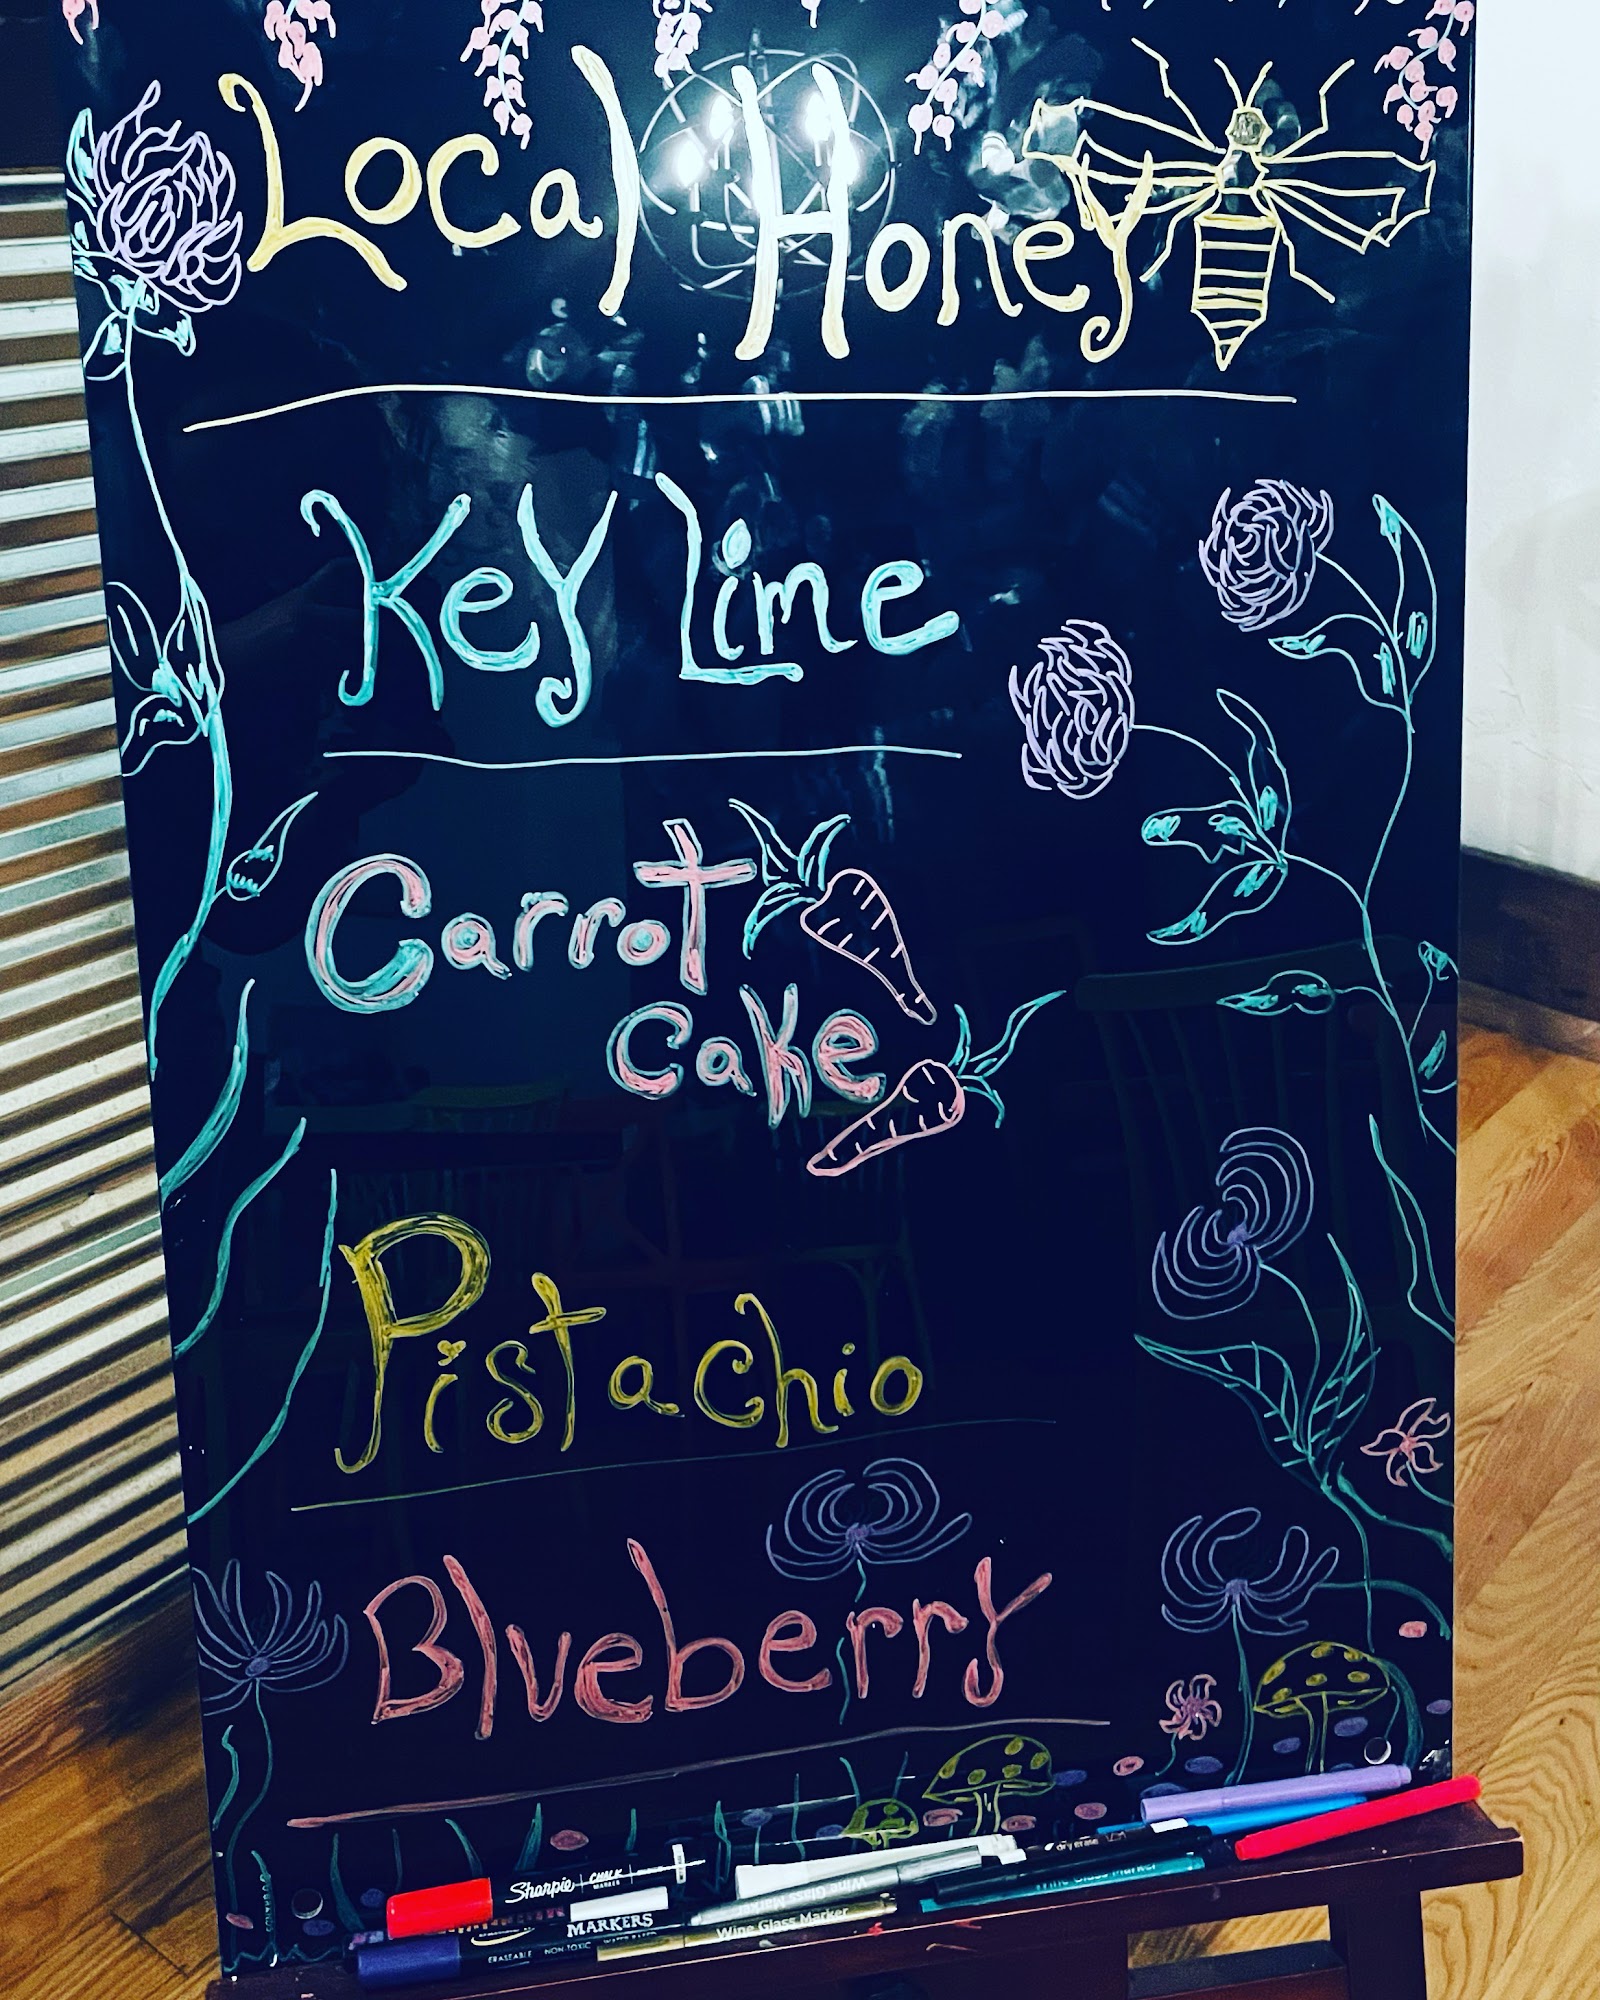 Local Honey
Key Lime
Carrot
Cake
Pistachio
Blueberry
Sharpie CHALK
MARKER
MARKERS
ERASEABLE NON-TOXIC
Wine Glass Marker
Wine Glass Marker
dry erase
Wine Glass Marker